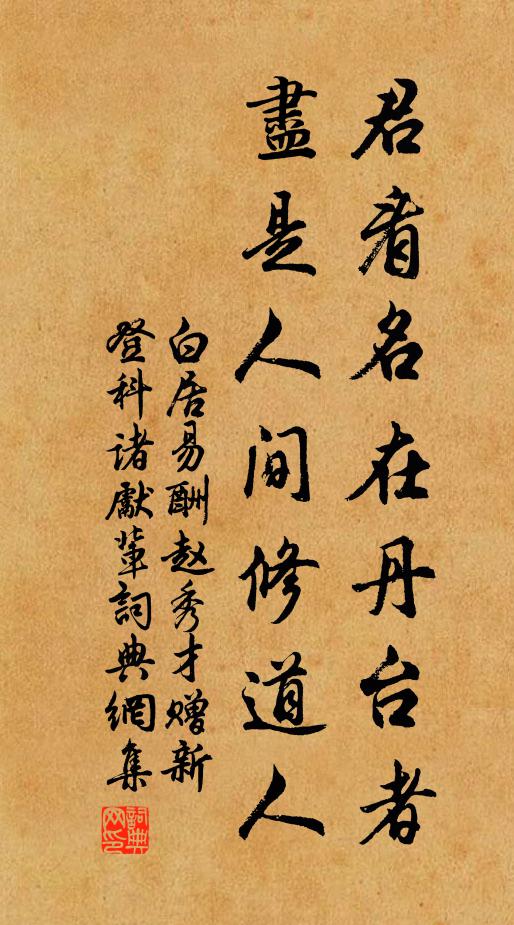 君看名在丹台者
盡是人间修道人
白居易酬赵秀才赠新
登科诸先輩詞典網集
詞典
网印